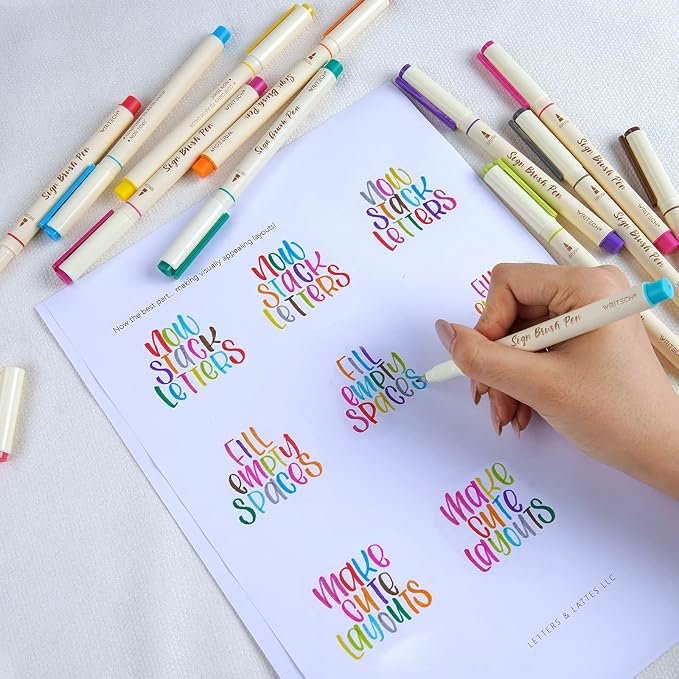 Sign Brush Pen
Sign Brush Pen
WRITECH®
Sign Brush Pen
WRITECH®
Sign Brush Pen
WRITECH®
Sign Brush Pen
WRITECH®
Sign Brush Pen
WRITECH®
Sign Brush Pen
Now the best part... making visually appealing layouts!
NOW
STACK
LETTERS
NOW
STACK
LETTERS
NOW
STACK
LETTERS
FILL
EMPTY
SPACES
FILL
EMPTY
SPACES
FILL
MAKE
CUTE
LAYOUTS
MAKE
CUTE
LAYOUTS
Sign Brush Pen
WRITECH®
LETTERS & LATTES LLC